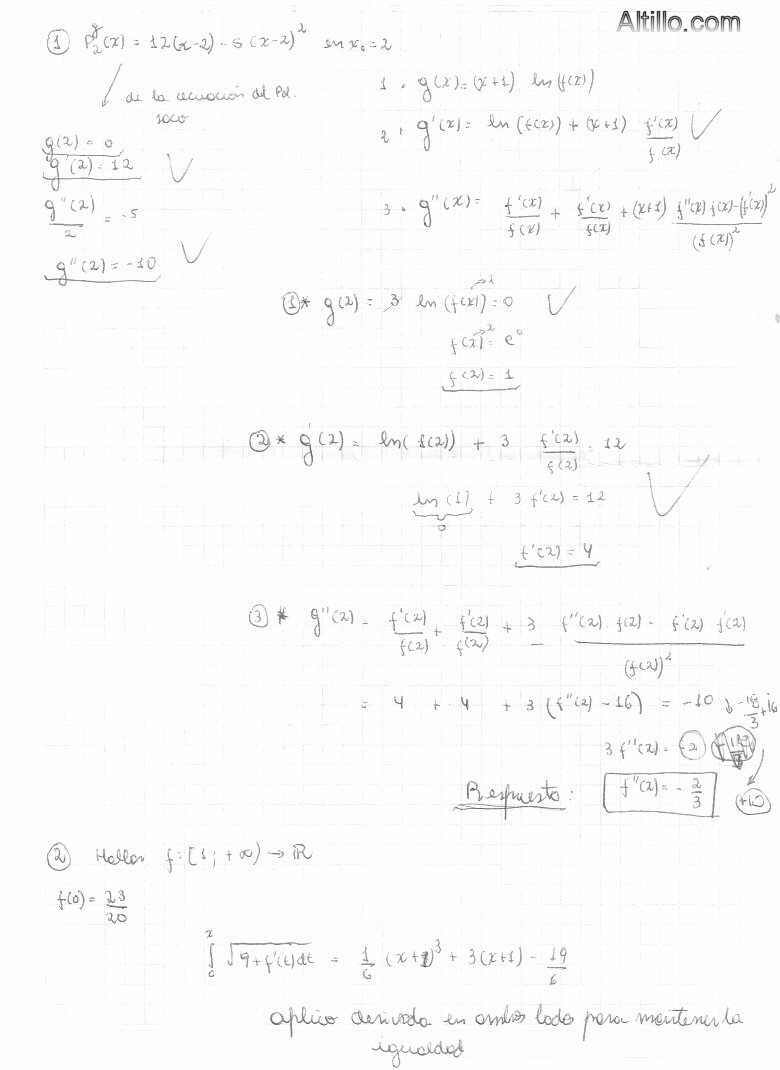 Altillo.com
① P₂ᵍ(x) = 12(x-2) - 5(x-2)² en x₀ = 2
de la ecuación del Pol.
saco
g(2) = 0
g'(2) = 12
g''(2)/2 = -5
g''(2) = -10
1 • g(x) = (x+1) ln(f(x))
2 • g'(x) = ln(f(x)) + (x+1) f'(x)/f(x)
3 • g''(x) = f'(x)/f(x) + f'(x)/f(x) + (x+1) (f''(x) f(x) - (f'(x))²)/(f(x))²
①* g(2) = 3 ln(f(x)) = 0
f(x) = e⁰
f(2) = 1
②* g'(2) = ln(f(2)) + 3 f'(2)/f(2) = 12
ln(1) + 3 f'(2) = 12
0
f'(2) = 4
③* g''(2) = f'(2)/f(2) + f'(2)/f(2) + 3 (f''(2) f(2) - f'(2) f'(2))/(f(2))²
= 4 + 4 + 3 (f''(2) - 16) = -10
3 f''(2) = -2
Respuesta: f''(2) = -2/3
② Hallar f: [1; +∞) → ℝ
f(0) = 23/20
∫₀ˣ √(9+f'(t)) dt = 1/6 (x+1)³ + 3(x+1) - 19/6
aplico derivada en ambos lados para mantener la
igualdad